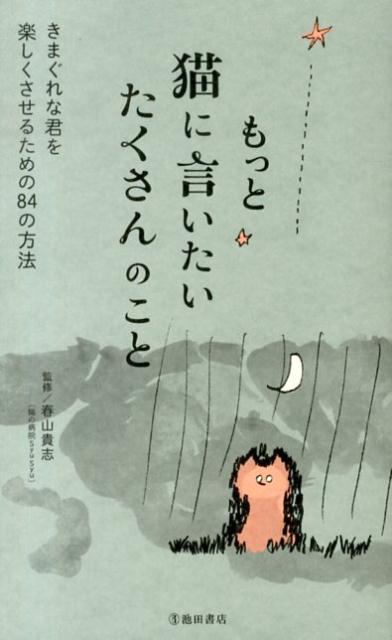 もっと
猫に言いたい
たくさんのこと
きまぐれな君を
楽しくさせるための84の方法
監修／春山貴志
（猫の病院syusyu）
池田書店